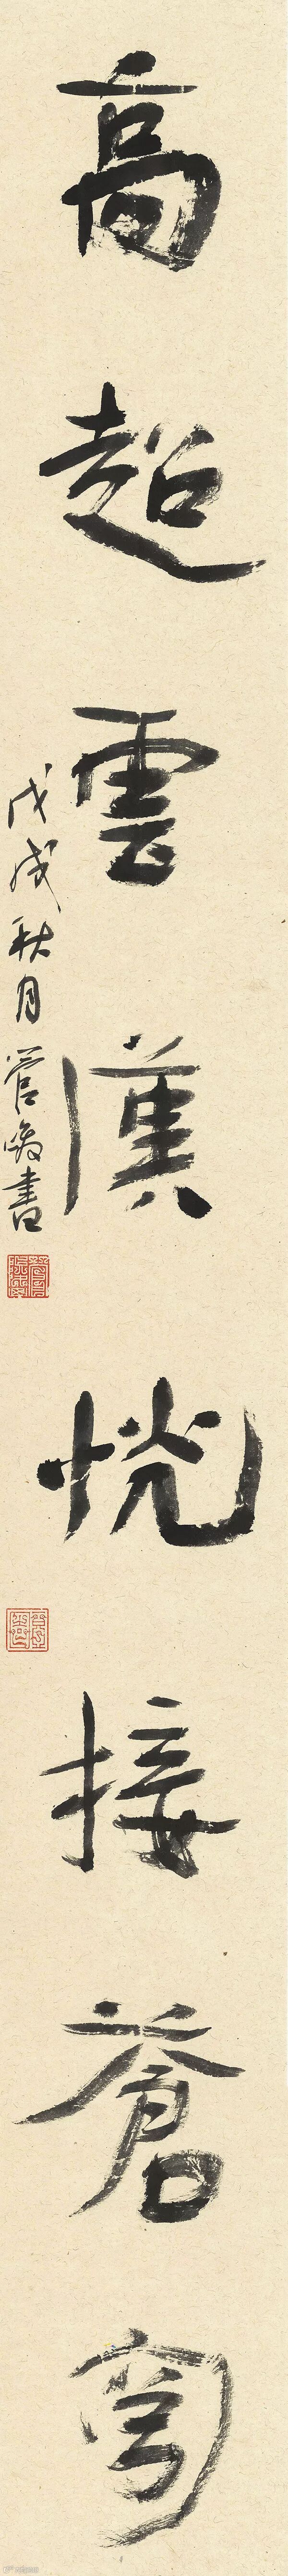 高超雲漢恍接蒼穹
戊戌秋月管峻書